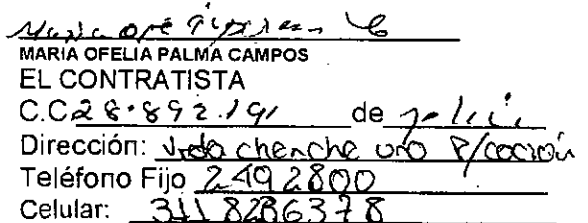 MARIA OFELIA PALMA CAMPOS
EL CONTRATISTA
C.C 28.892.191 de
Dirección: Vreda chenche uno
Teléfono Fijo 2492800
Celular: 311 8286378